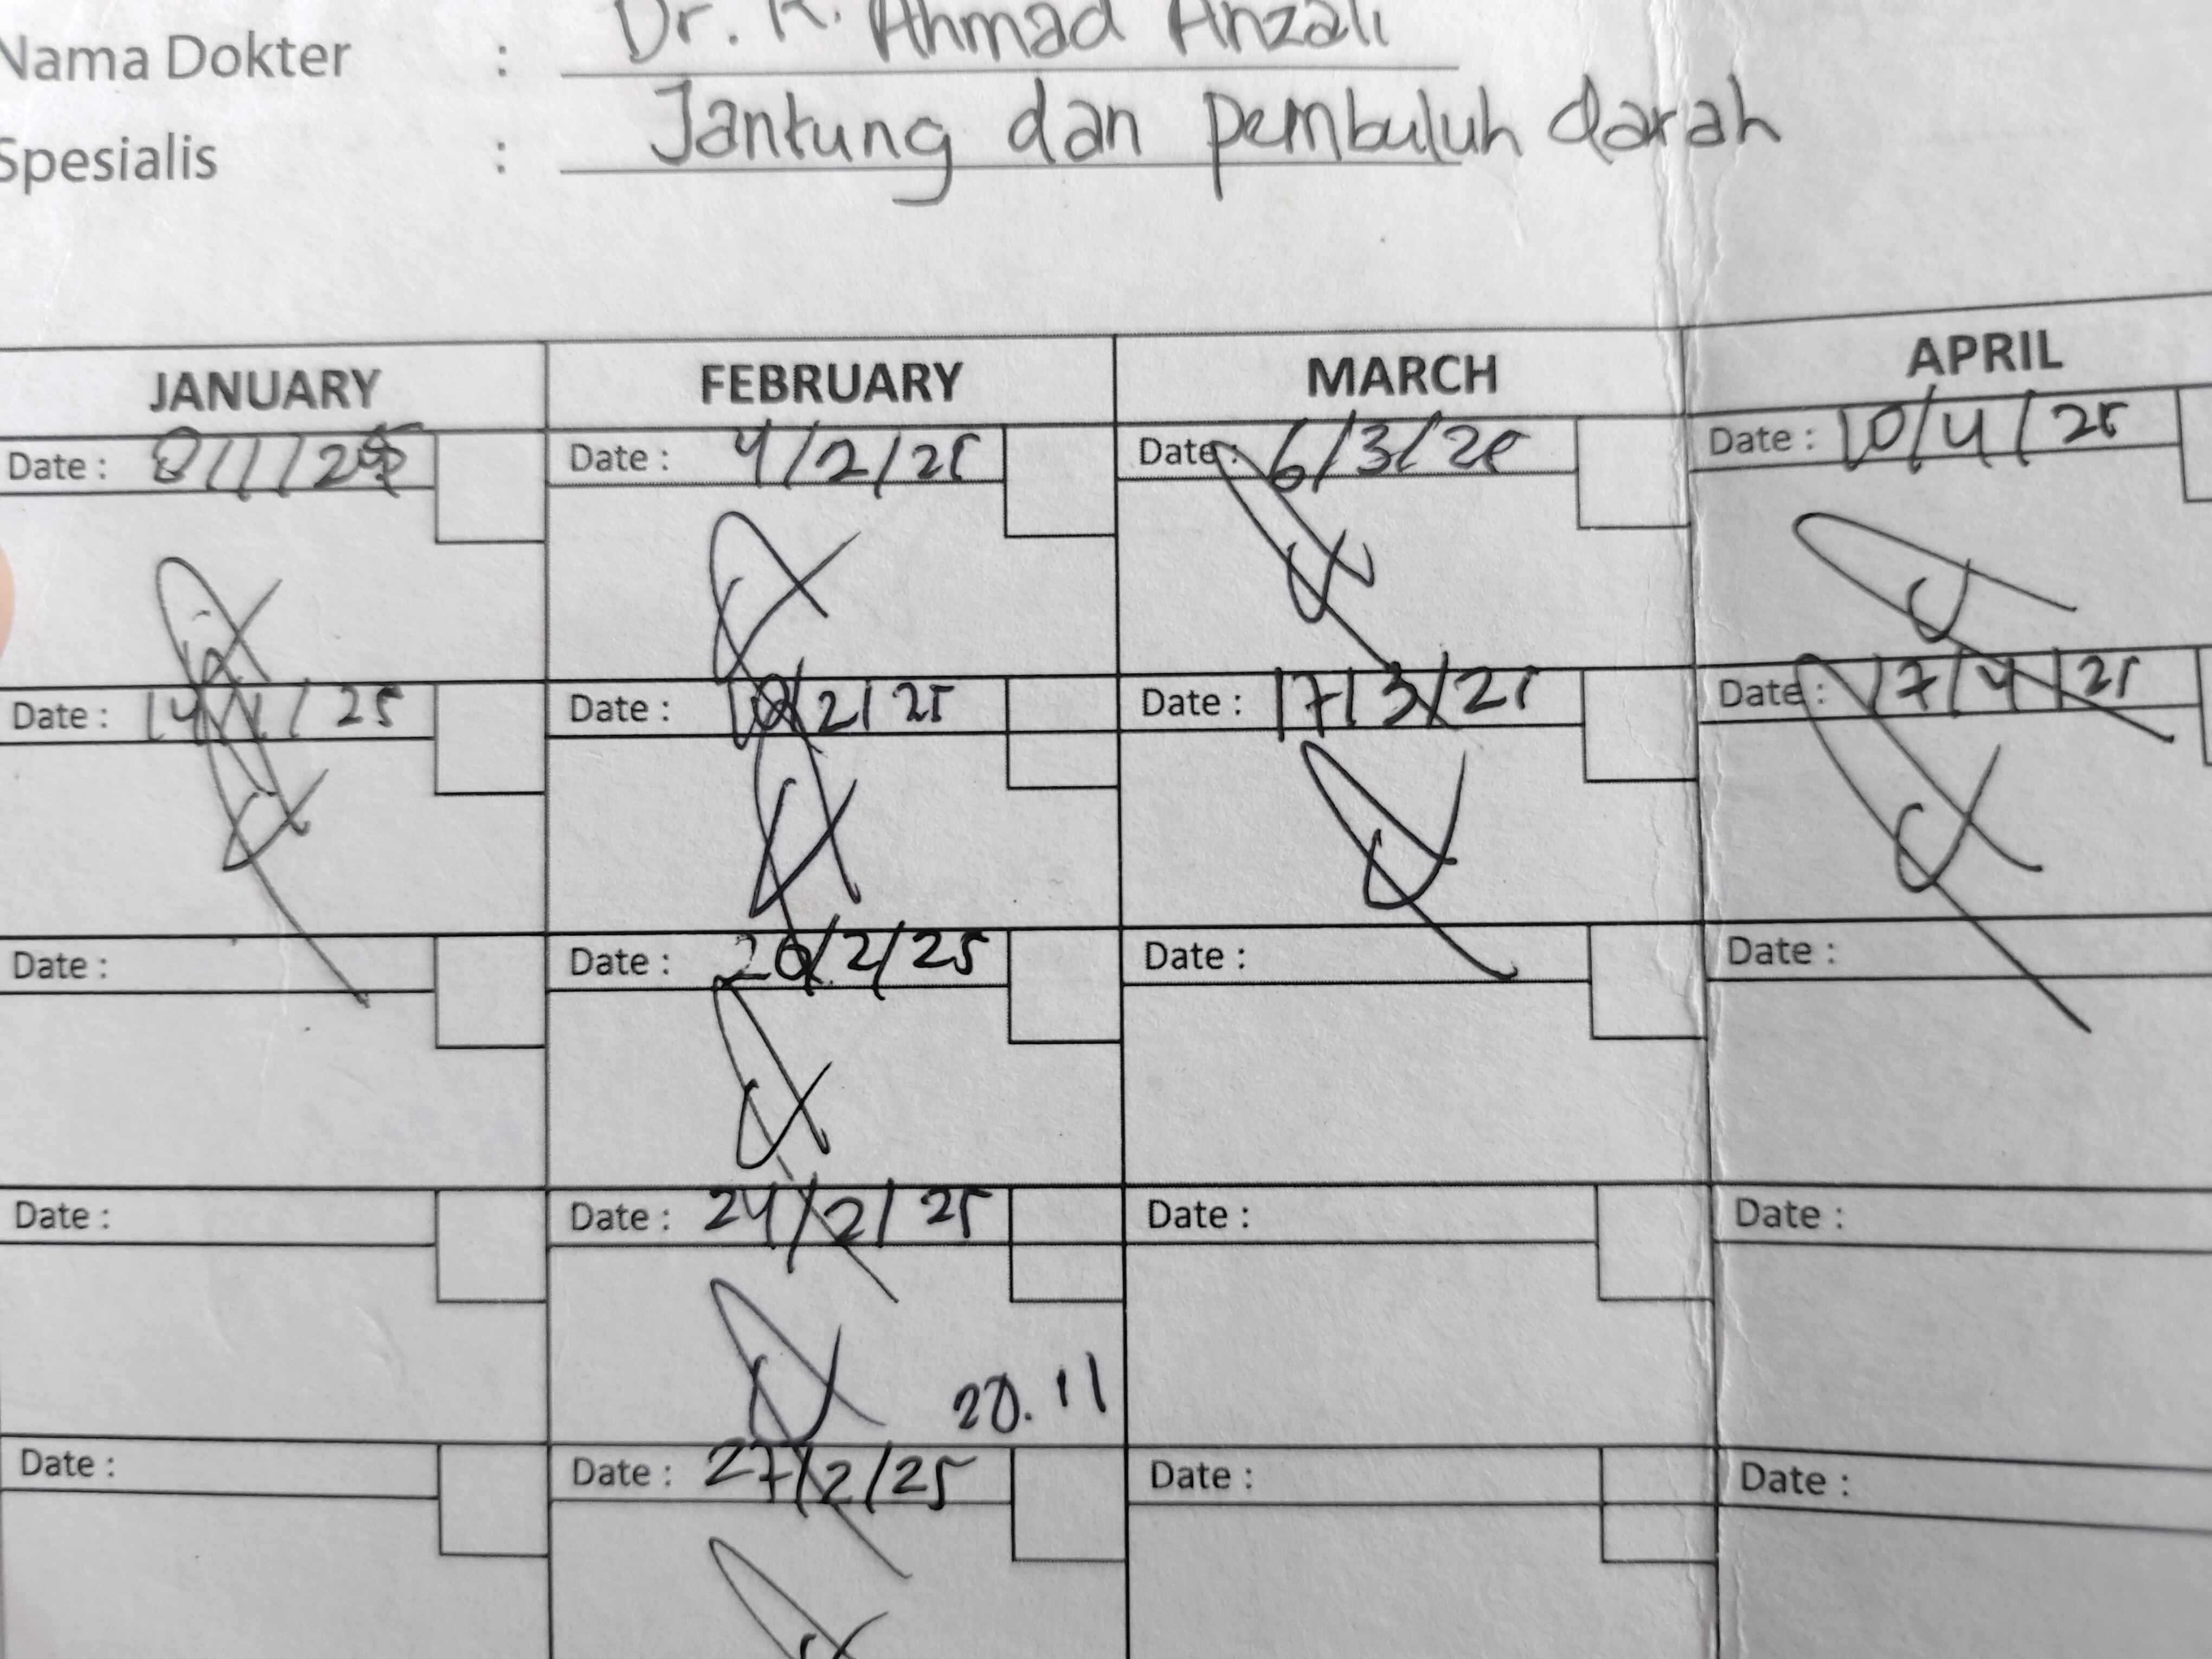 Nama Dokter : Dr. R. Ahmad Anzali
Spesialis : Jantung dan pembuluh darah
JANUARY FEBRUARY MARCH APRIL
Date : 8/1/25 Date : 4/2/25 Date : 6/3/25 Date : 10/4/25
Date : 14/1/25 Date : 10/2/25 Date : 17/3/25 Date : 17/4/25
Date : Date : 20/2/25 Date : Date :
Date : Date : 24/2/25 Date : Date :
20.11
Date : Date : 27/2/25 Date : Date :